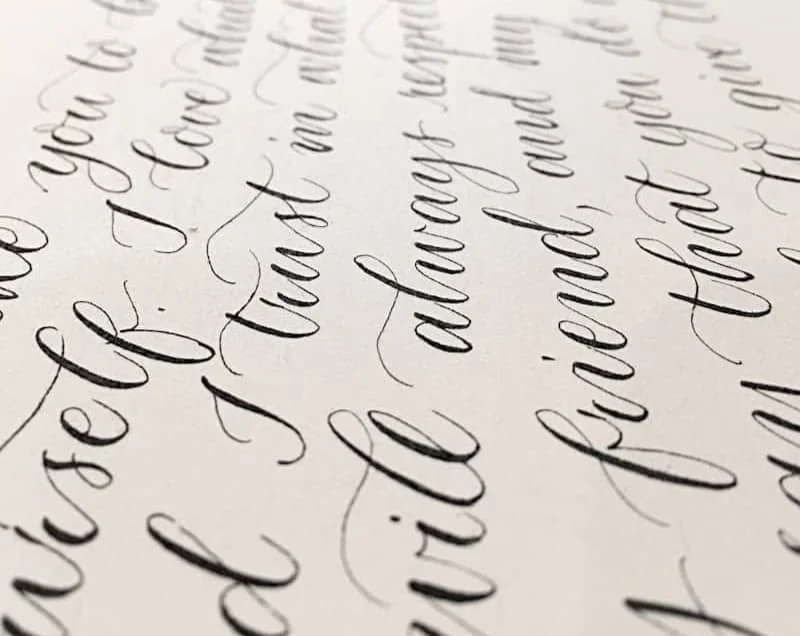 you to
urself. I love what
d I trust in what
will always respec
y friend, and my
that you do
to give